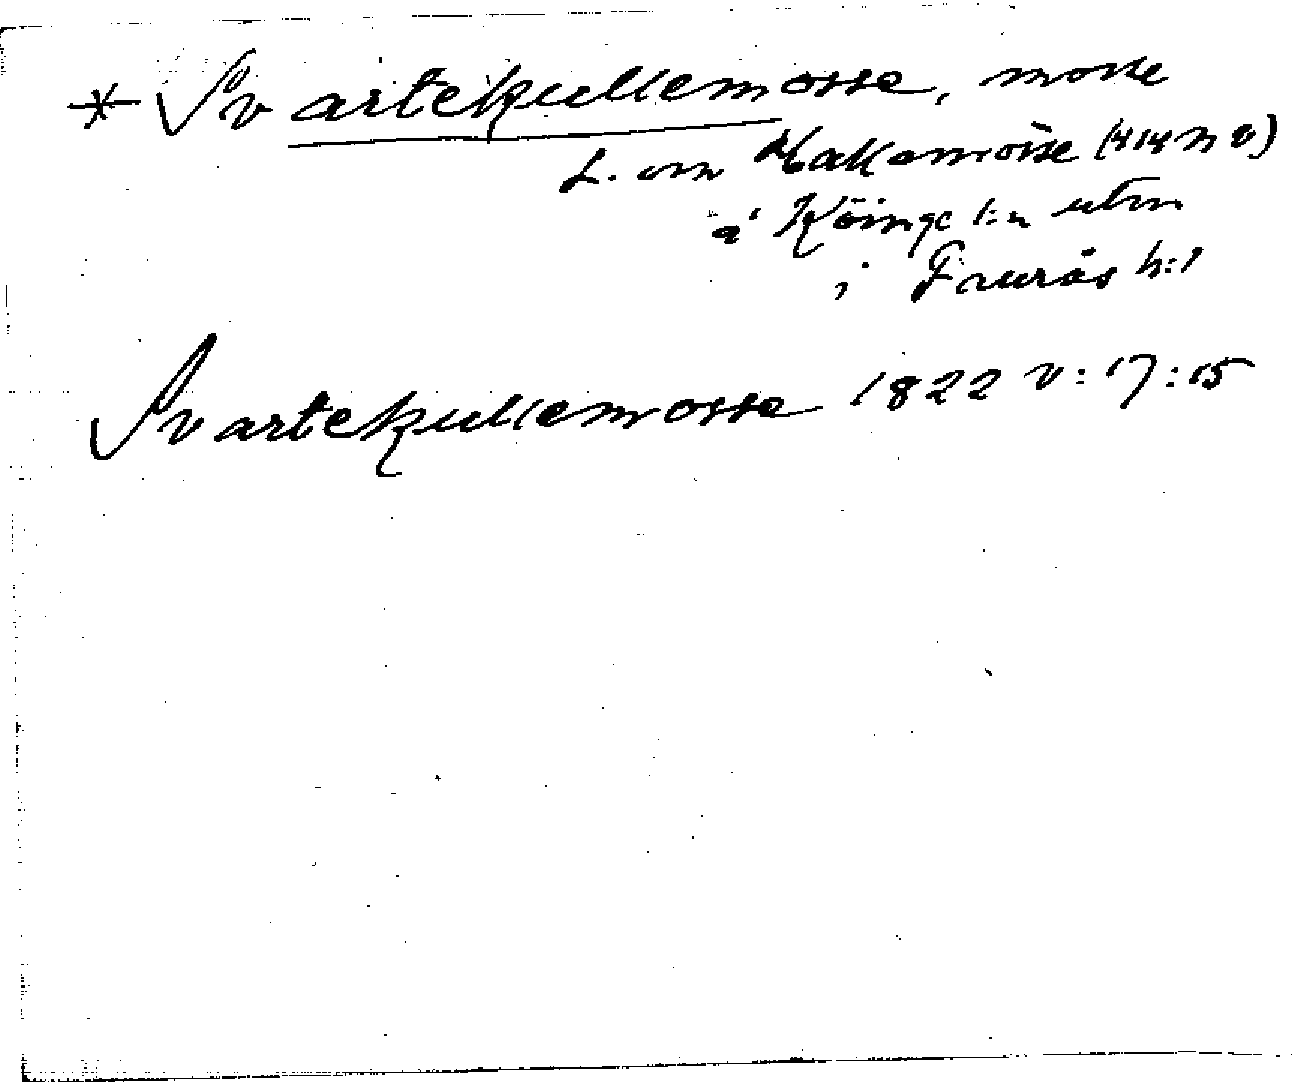 * Svartekullemosse, mosse
L. om Hakamöise (414 n v)
å Köinge l:n utm
i Faurås h:d
Svartekullemosse 1822 v:17:15